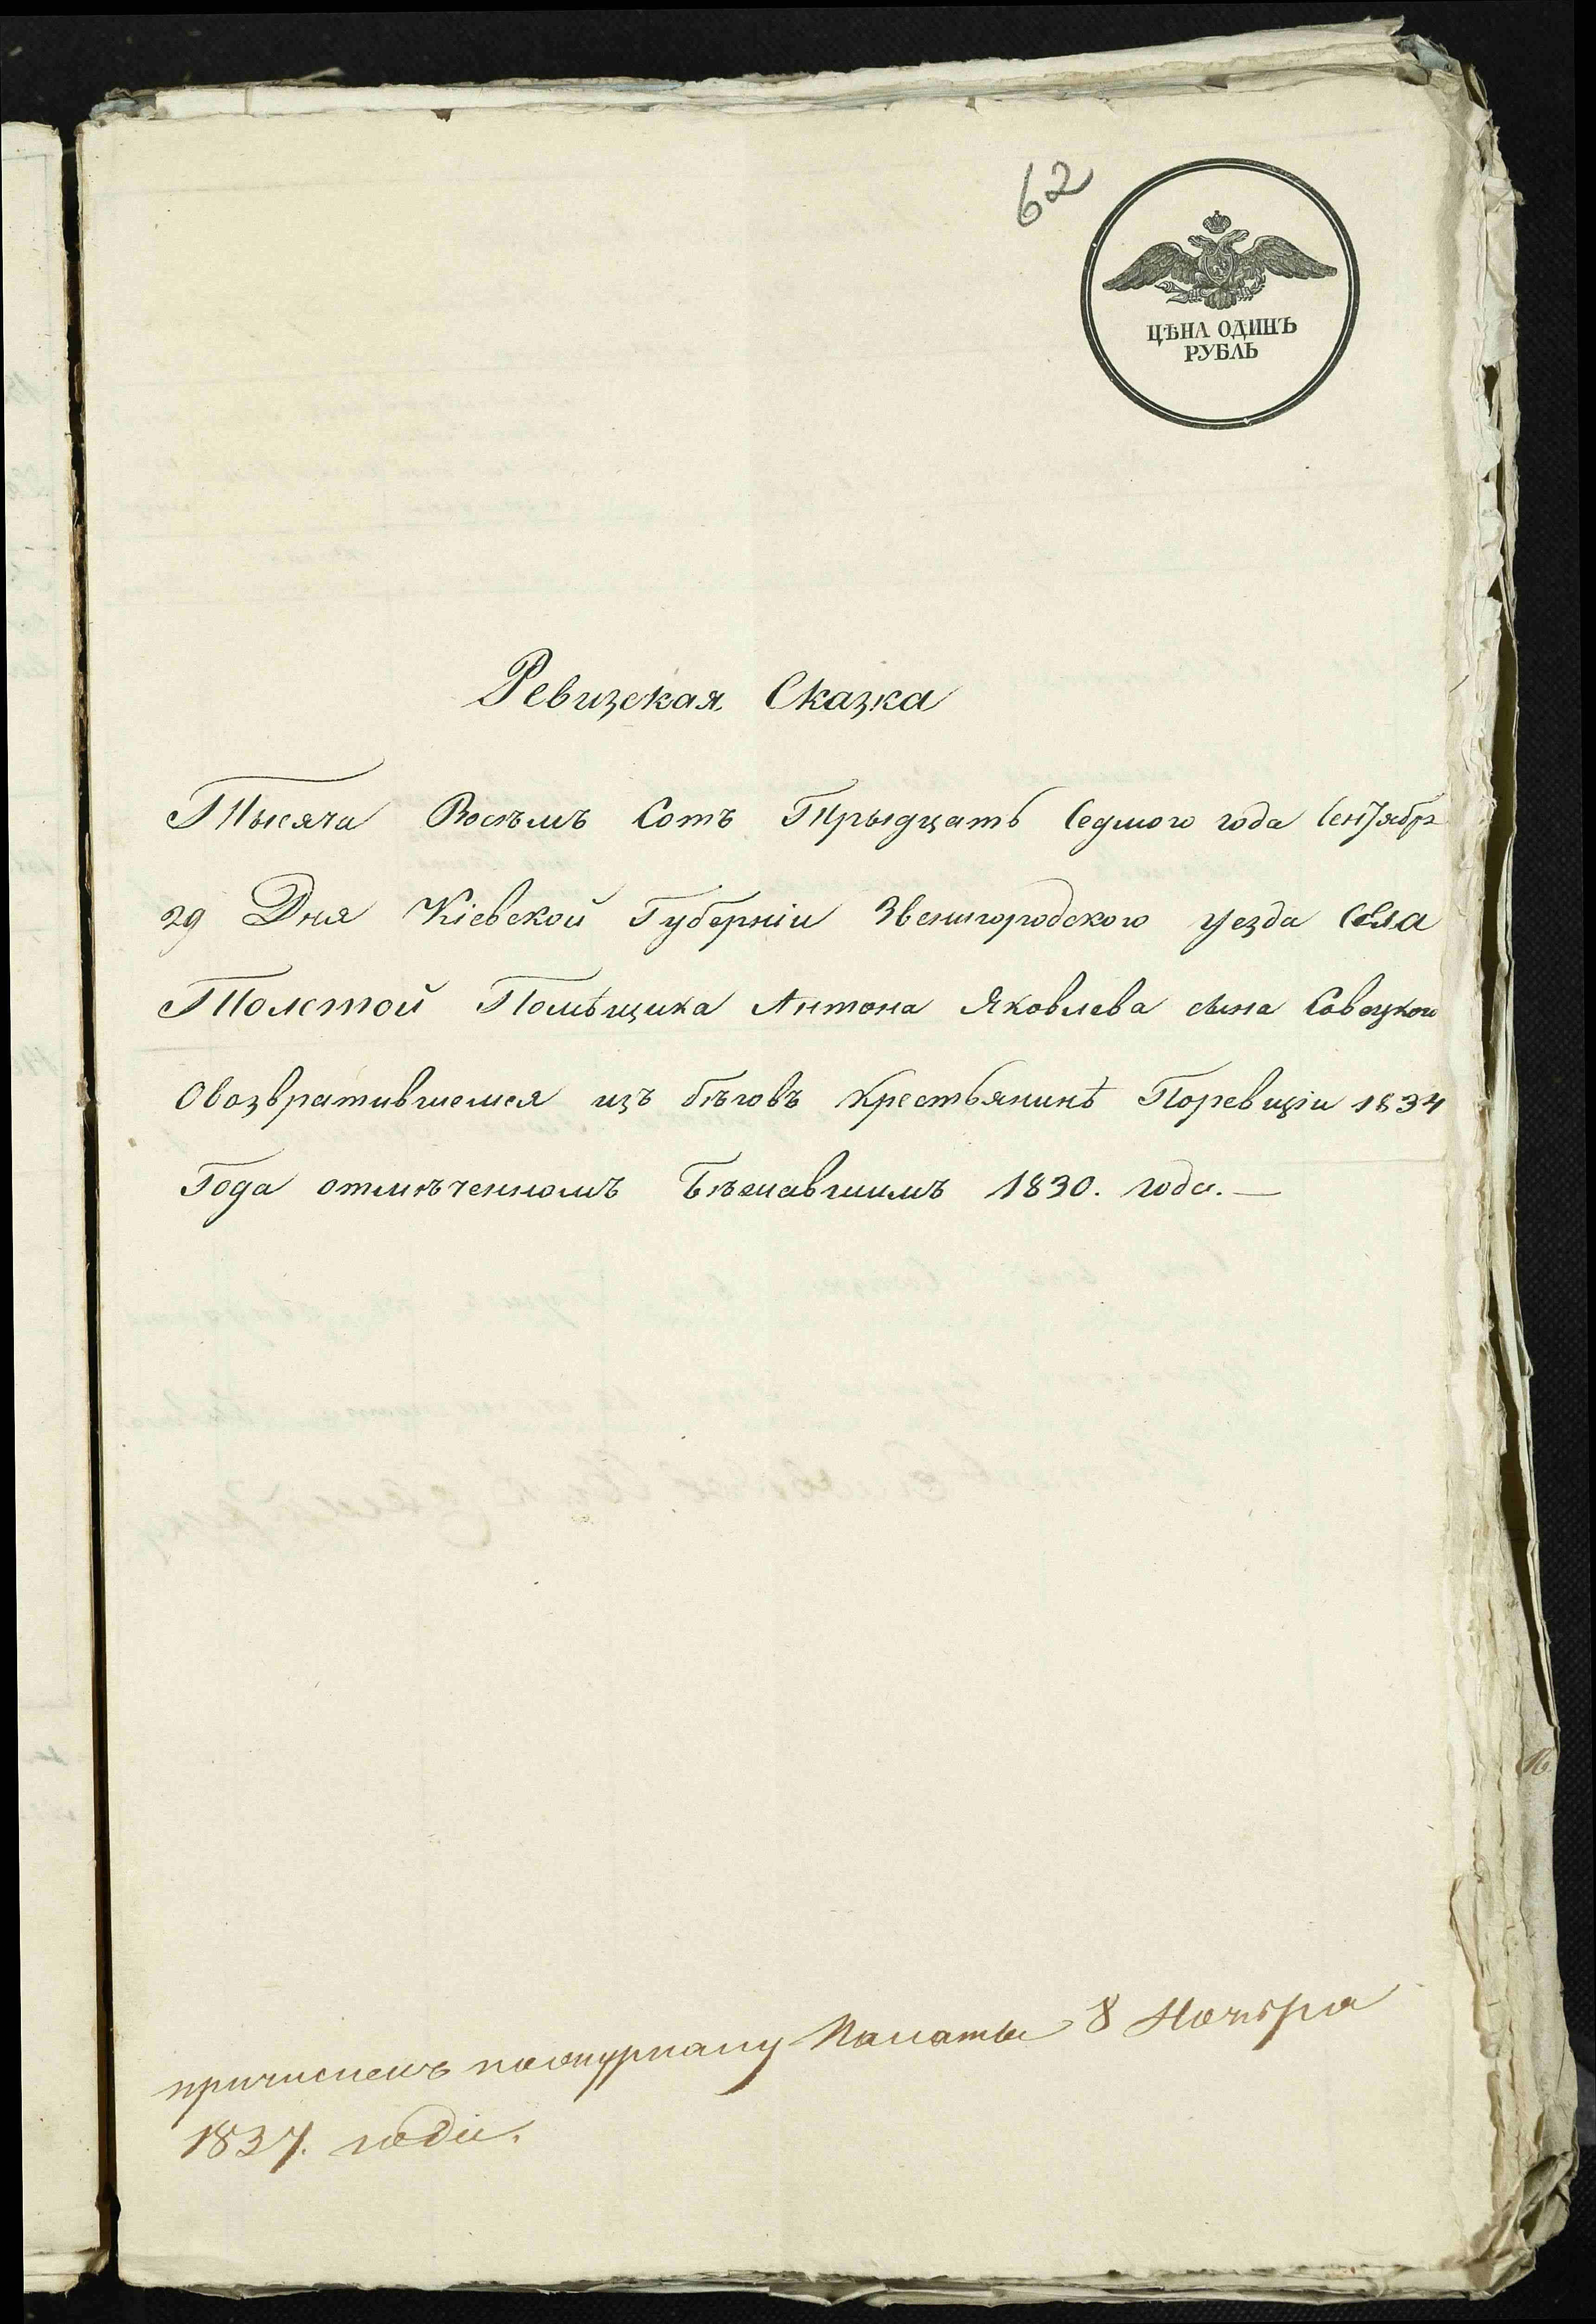 62
ЦѢНА ОДИНЪ
РУБЛЬ
Ревизская Сказка
Тысяча Восѣмъ Сотъ Трыдцать Седмого года Сентября
29 Дня Кіевской Губерніи Звенигородского уезда Села
Толстой Помѣщика Антона Яковлева сына
Овозвратившемся изъ бѣговъ крестьянинѣ Поревизіи 1834
Года отмѣченномъ Бѣжавшимъ 1830. года.—
причисленъ пожурналу Палаты 8 Ноября
1837. года.